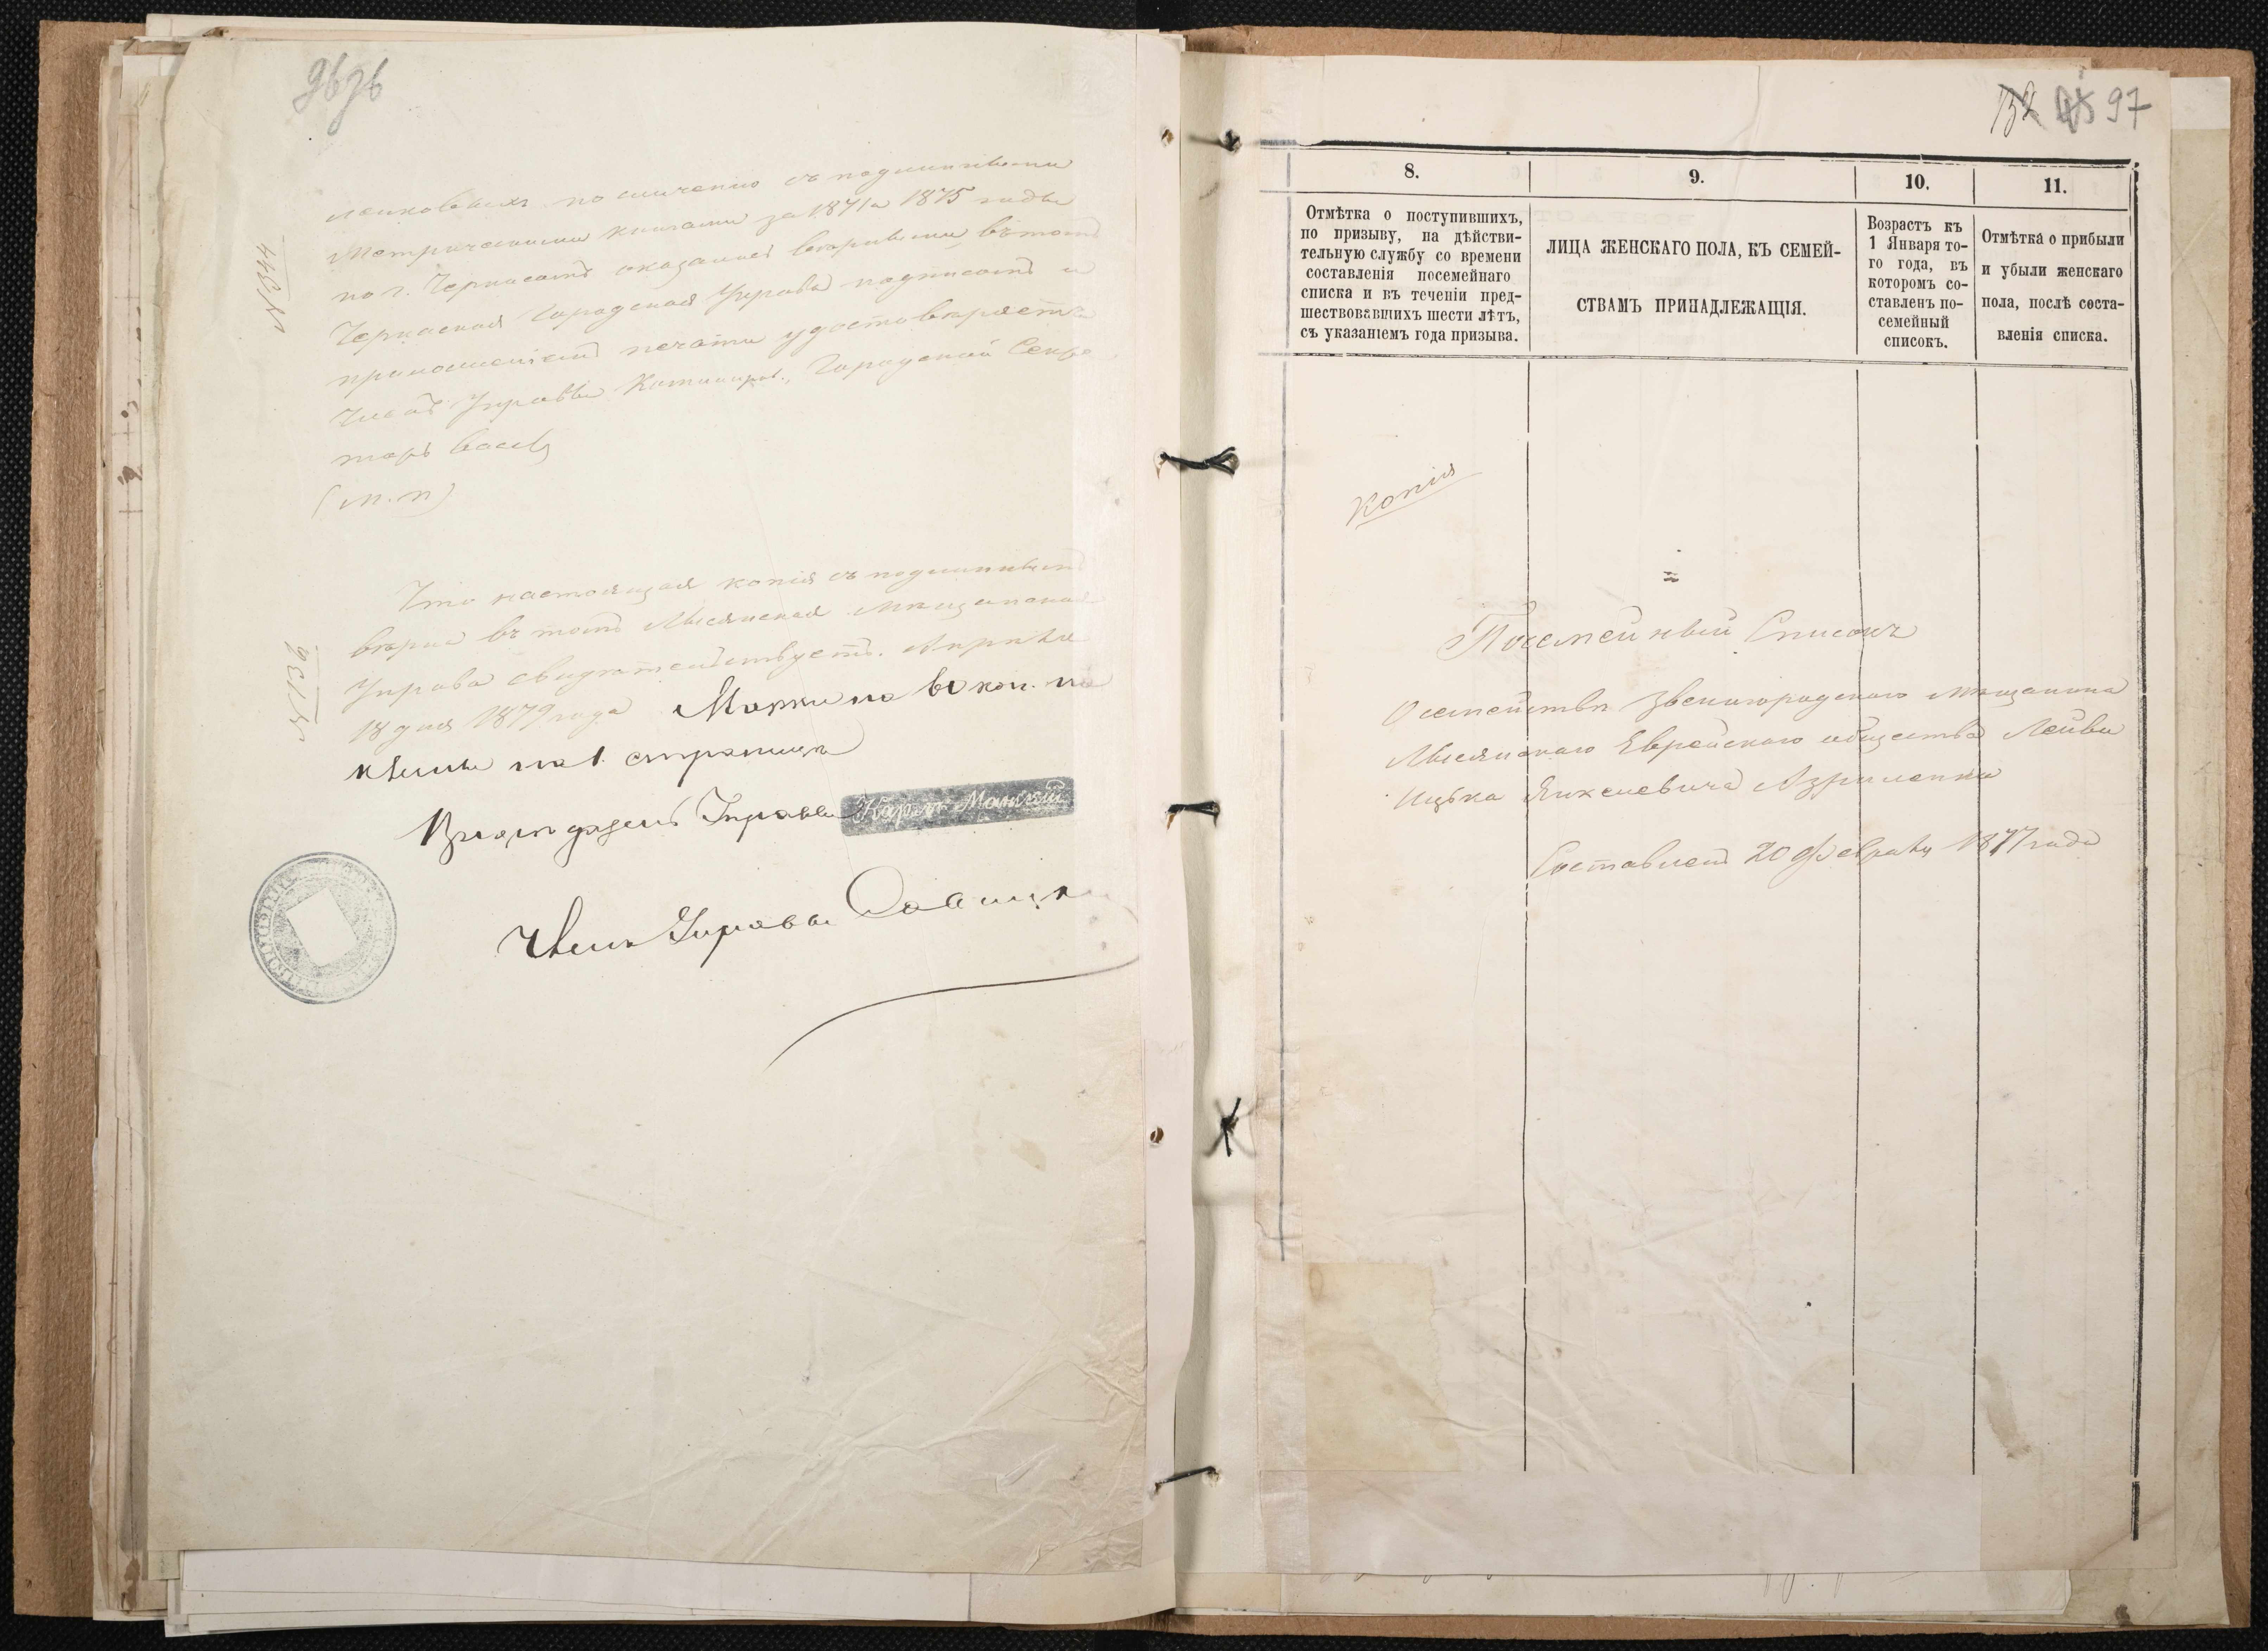 96 об
№ 344
по сличенію съ подлинными
Метрическими книгами за 1871 и 1875 годы
по г. Черкасамъ оказались вѣрными, въ томъ
Черкаская Городская Управа подписомъ и
приложеніемъ печати удостовѣряетъ
Членъ Управы Городской Секре
тарь
(м. п)
Что настоящая копія съ подлиннымъ
вѣрна въ томъ Лысянская Мѣщанская
Управа свидѣтельствуетъ. Апрѣля
18 дня 1879 года Марки на 60 коп. на
клеены на 1 страницѣ
Управы Карлъ
Членъ Управы
97
8.
9.
10.
11.
Отмѣтка о поступившихъ,
по призыву, на дѣйстви-
тельную службу со времени
составленія посемейнаго
списка и въ теченіи пред-
шествовавшихъ шести лѣтъ,
съ указаніемъ года призыва.
ЛИЦА ЖЕНСКАГО ПОЛА, КЪ СЕМЕЙ-
СТВАМЪ ПРИНАДЛЕЖАЩІЯ.
Возрастъ къ
1 Января то-
го года, въ
котором со-
ставленъ по-
семейный
списокъ.
Отмѣтка о прибыли
и убыли женскаго
пола, послѣ соста-
вленія списка.
Копія
Посемейный Списокъ
О семействѣ Звенигородскаго мѣщанина
Лысянскаго Еврейскаго общества Лейви
Ицька Янкелевича
Составленъ 20 Февраля 1877 года